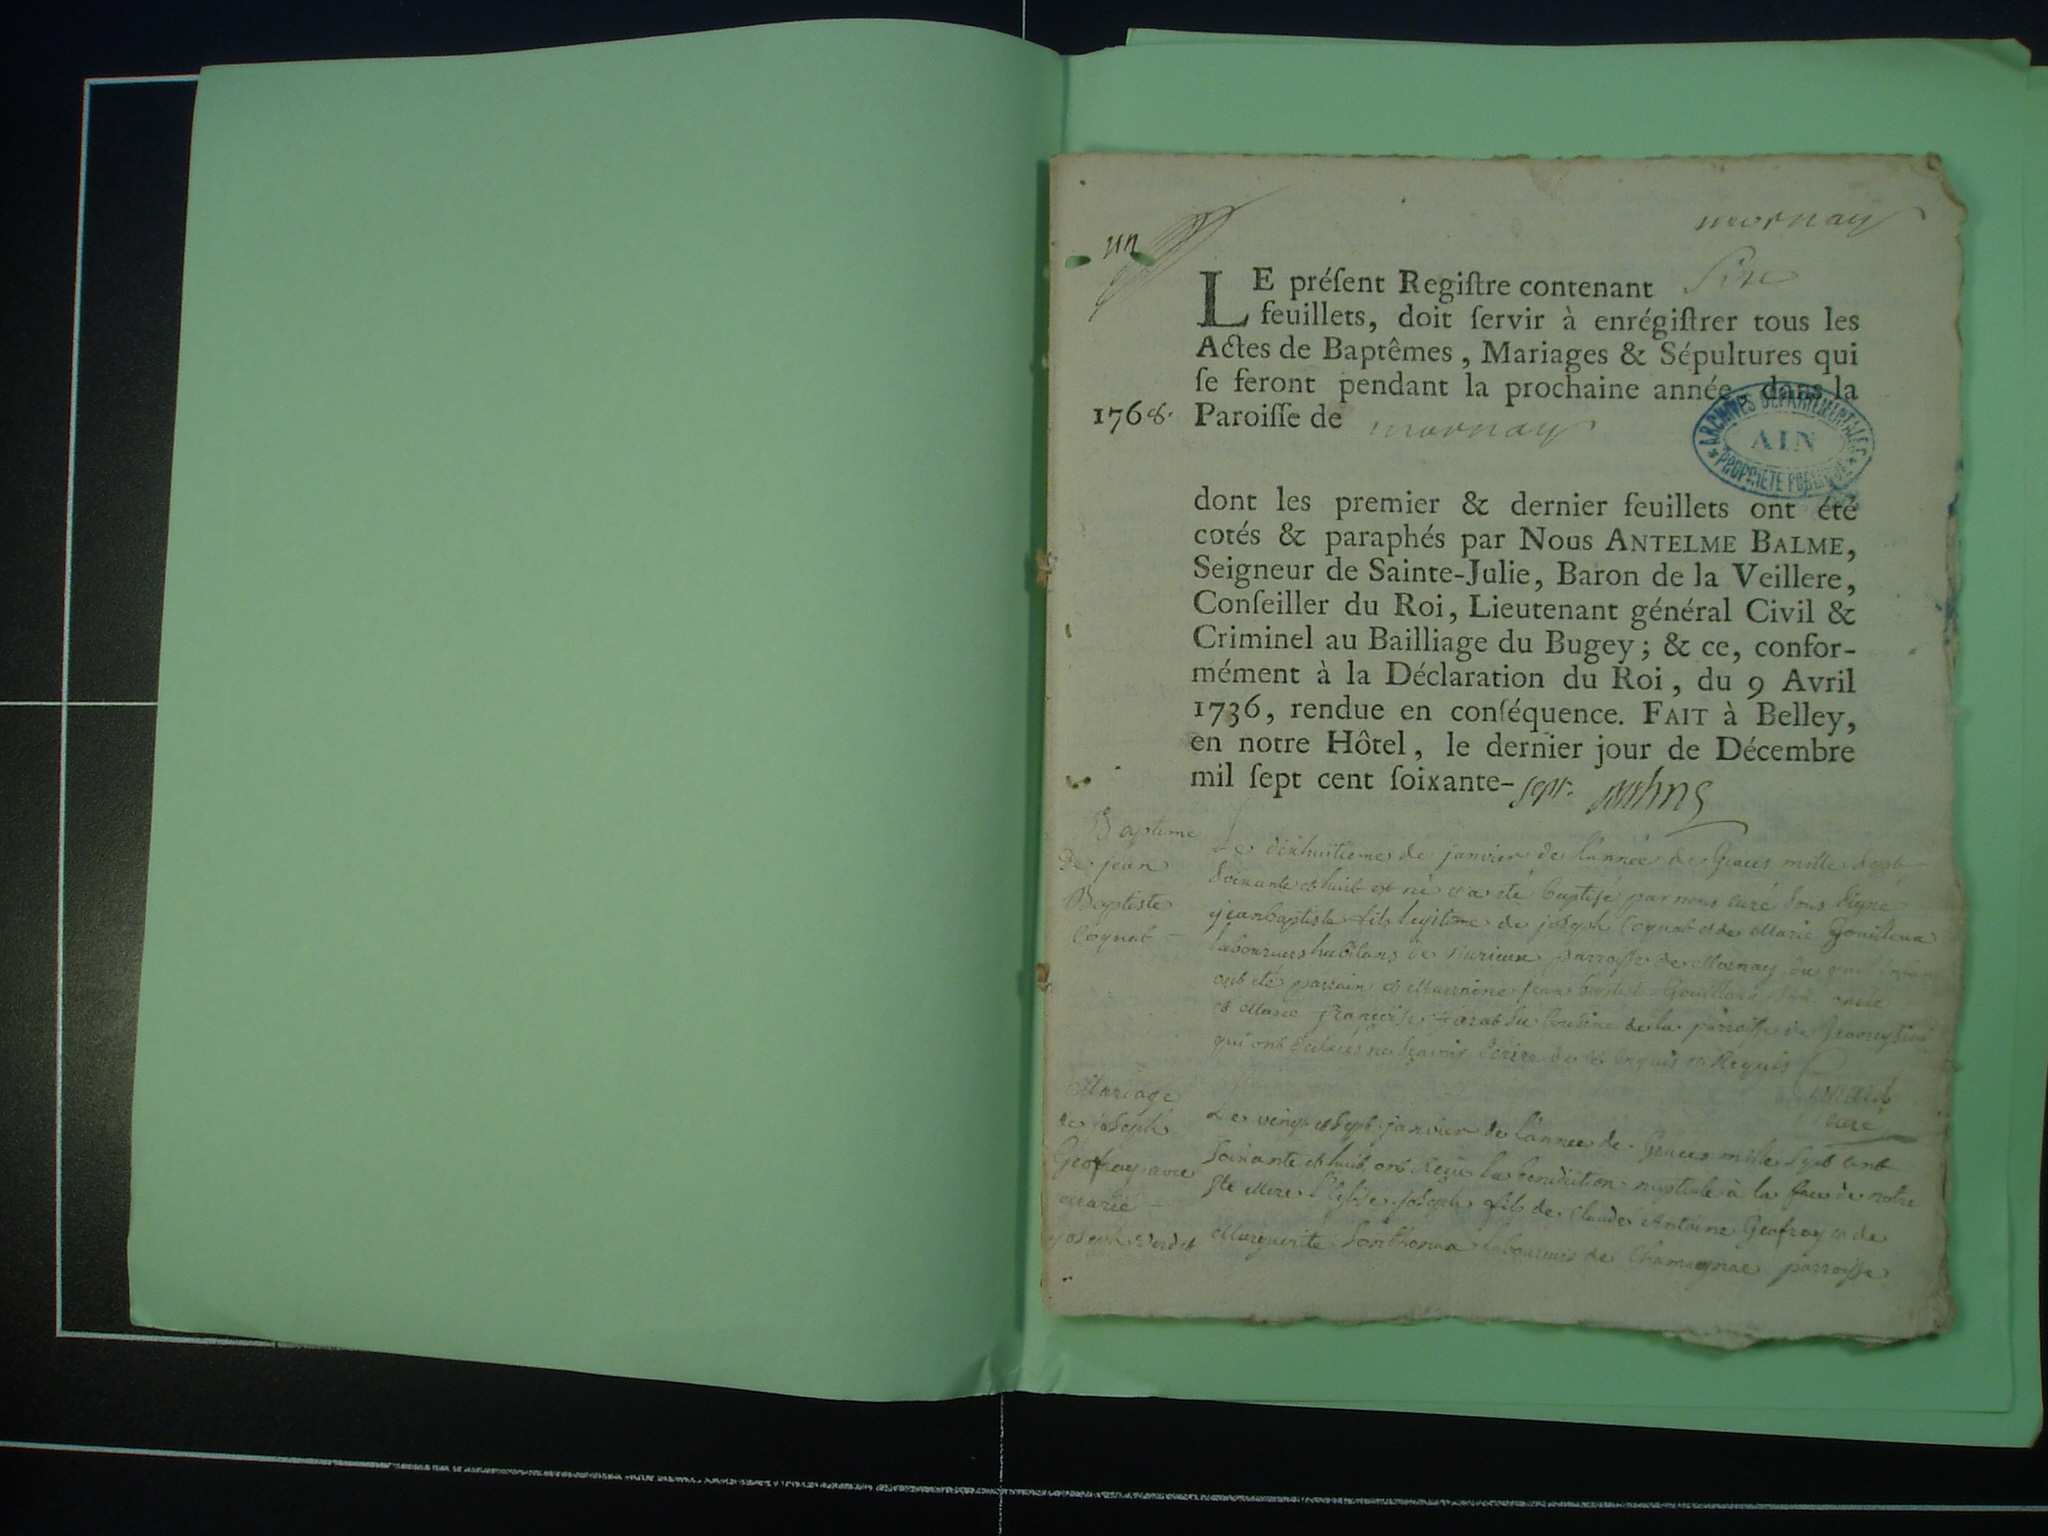 un
mornay
LE préſent Regiſtre contenant Six
feuillets, doit ſervir à enrégiſtrer tous les
Actes de Baptêmes, Mariages & Sépultures qui
ſe feront pendant la prochaine année, dans la
1768. Paroiſſe de mornay
ARCHIVES DÉPARTEMENTALES
AIN
PROPRIÉTÉ PUBLIQUE
dont les premier & dernier feuillets ont été
cotés & paraphés par Nous ANTELME BALME,
Seigneur de Sainte-Julie, Baron de la Veillere,
Conſeiller du Roi, Lieutenant général Civil &
Criminel au Bailliage du Bugey; & ce, confor-
mément à la Déclaration du Roi, du 9 Avril
1736, rendue en conſéquence. FAIT à Belley,
en notre Hôtel, le dernier jour de Décembre
mil ſept cent ſoixante-sept.
Bapteme
De jean
Baptiste
Cognat
Le dixhuitieme de janvier de l'année de Graces mille Sept
Soixante et huit est né et a été baptisé par nous curé Sous Signé
jeanbaptiste fils legitime de joseph Cognat et de Marie
laboureurs habitans de parroisse de Mornay
ont été parrain et Marraine jean baptiste
et Marie françoise de la parroisse de
qui ont declarés ne sçavoir Ecrire de ce Enquis et Requis
curé
Mariage
de joseph
Geofray avec
marie
joseph
Le vingt et sept janvier de l'année de Graces mille Sept cent
Soixante et huit ont Reçu la benediction nuptiale à la face de notre
Ste Mere l'Eglise joseph fils de Claude Antoine Geofray et de
Marguerite laboureurs de Chamagnac parroisse